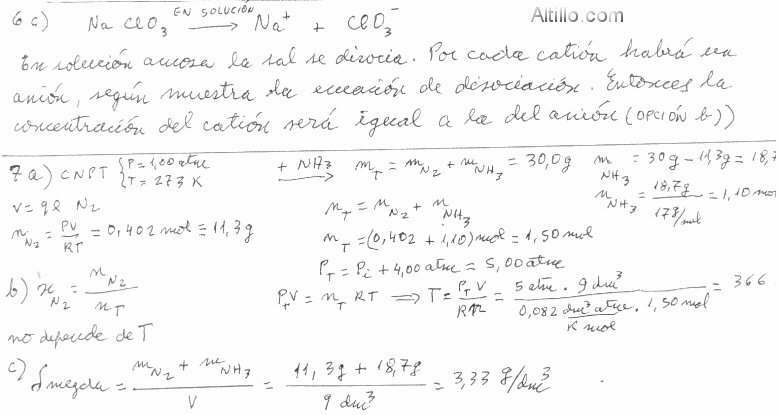 Altillo.com
6 c) Na ClO3 EN SOLUCIÓN → Na+ + ClO3-
En solución acuosa la sal se disocia. Por cada catión habrá un
anión, según muestra la ecuación de disociación. Entonces la
concentración del catión será igual a la del anión (OPCIÓN b))
7 a) CNPT { P = 1,00 atm T = 273 K + NH3 → mT = mN2 + mNH3 = 30,0g m NH3 = 30g - 11,3g = 18,7
V = 9 l N2 nT = nN2 + nNH3 n NH3 = 18,7g / 17g/mol = 1,10 mol
nN2 = PV/RT = 0,402 mol = 11,3g nT = (0,402 + 1,10) mol = 1,50 mol
PT = Pi + 4,00 atm = 5,00 atm
b) xN2 = nN2 / nT PT V = nT RT ⟹ T = PT V / Rn = 5 atm . 9 dm3 / 0,082 dm3 atm / K mol . 1,50 mol = 366
no depende de T
c) δ mezcla = mN2 + mNH3 / V = 11,3g + 18,7g / 9 dm3 = 3,33 g/dm3